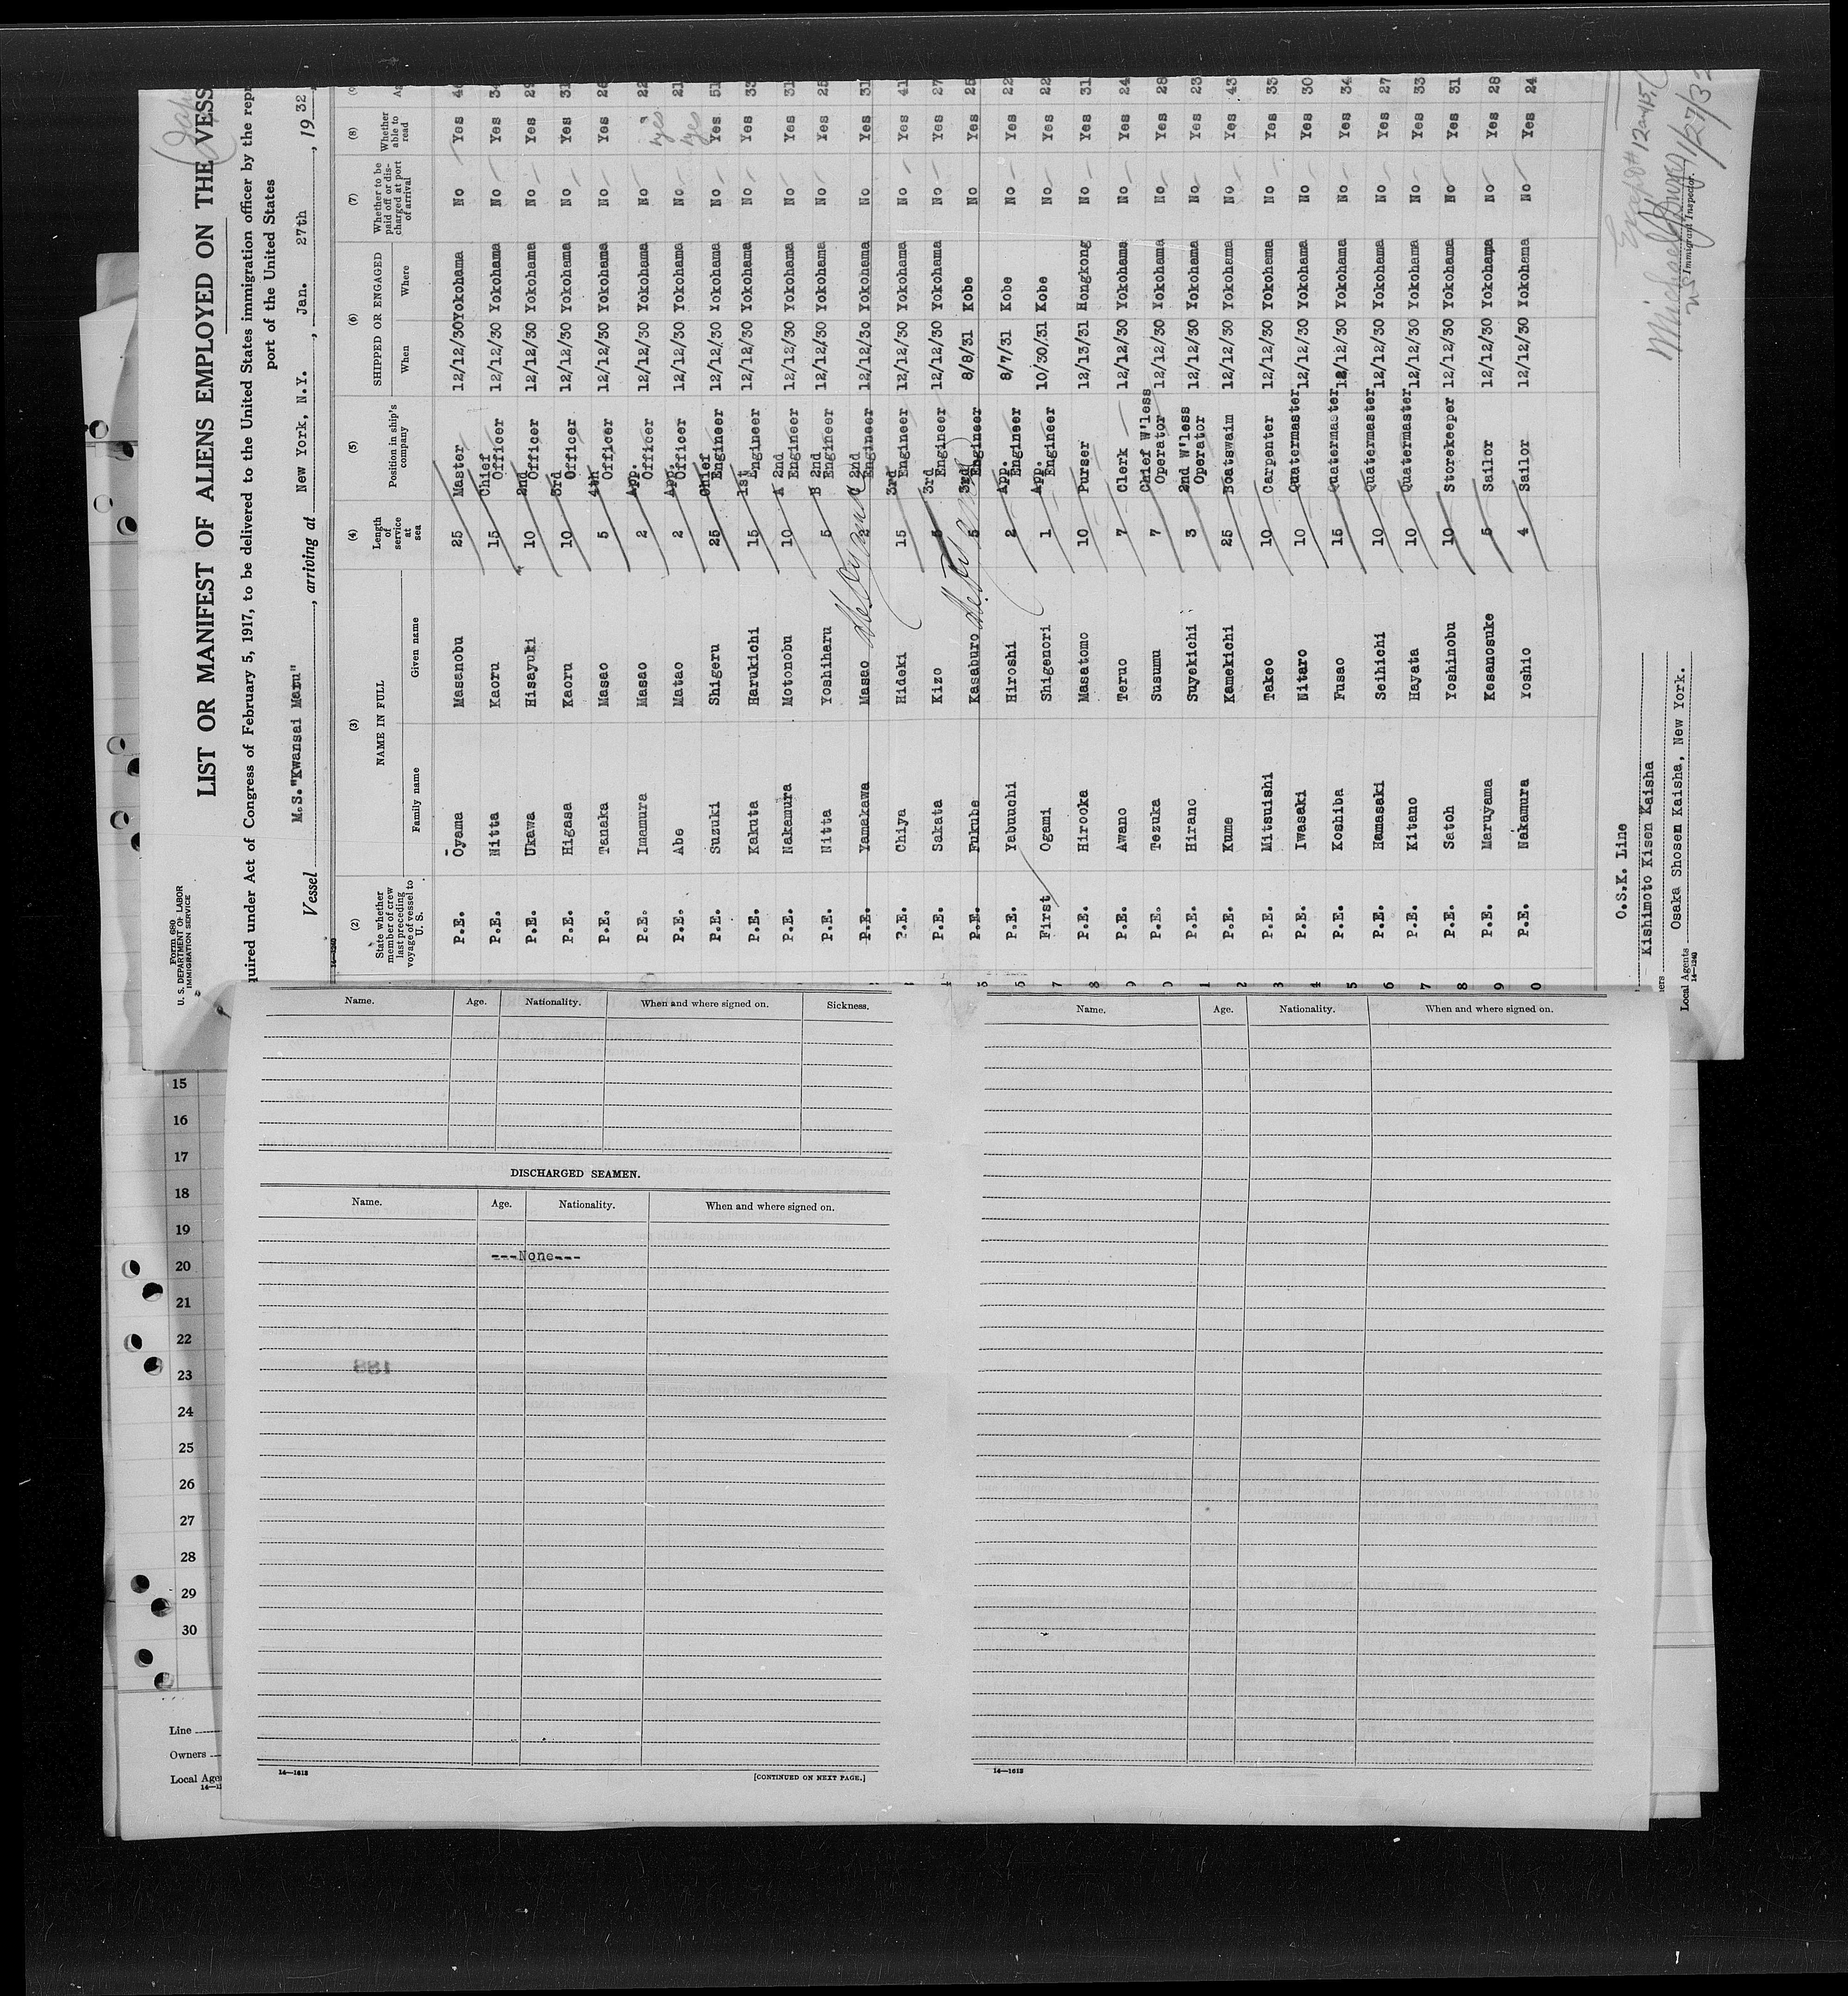 Form 680
U. S. DEPARTMENT OF LABOR
IMMIGRATION SERVICE
LIST OR MANIFEST OF ALIENS EMPLOYED ON THE VESS
quired under Act of Congress of February 5, 1917, to be delivered to the United States immigration officer by the repr
port of the United States
Vessel M.S."Kwansai Maru", arriving at New York, N.Y., Jan. 27th, 1932
14-1240
(2) (3) (4) (5) (6) (7) (8)
State whether member of crew last preceding voyage of vessel to U. S. NAME IN FULL Length of service at sea Position in ship's company SHIPPED OR ENGAGED Whether to be paid off or discharged at port of arrival Whether able to read
Family name Given name When Where
P.E. Ōyama Masanobu 25 Master 12/12/30 Yokohama No Yes
P.E. Nitta Kaoru 15 Chief Officer 12/12/30 Yokohama No Yes 34
P.E. Ukawa Hisayuki 10 2nd Officer 12/12/30 Yokohama No Yes 29
P.E. Higasa Kaoru 10 3rd Officer 12/12/30 Yokohama No Yes 31
P.E. Tanaka Masao 5 4th Officer 12/12/30 Yokohama No Yes 26
P.E. Imamura Masao 2 App. Officer 12/12/30 Yokohama No yes 22
P.E. Abe Matao 2 App. Officer 12/12/30 Yokohama No yes 21
P.E. Suzuki Shigeru 25 Chief Engineer 12/12/30 Yokohama No Yes 51
P.E. Kakuta Harukichi 15 1st Engineer 12/12/30 Yokohama No Yes 33
P.E. Nakamura Motonobu 10 A 2nd Engineer 12/12/30 Yokohama No Yes 31
P.E. Nitta Yoshiharu 5 B 2nd Engineer 12/12/30 Yokohama No Yes 25
P.E. Yamakawa Masao 2 C 2nd Engineer 12/12/30 Yokohama No Yes 31
P.E. Chiya Hideki 15 3rd Engineer 12/12/30 Yokohama No Yes 41
P.E. Sakata Kizo 5 3rd Engineer 12/12/30 Yokohama No Yes 27
P.E. Fukube Kasaburo 5 3rd Engineer 8/8/31 Kobe No Yes 25
P.E. Yabuuchi Hiroshi 2 App. Engineer 8/7/31 Kobe No Yes 22
First Ogami Shigenori 1 App. Engineer 10/30/31 Kobe No Yes 22
P.E. Hirooka Masatomo 10 Purser 12/13/31 Hongkong No Yes 31
P.E. Awano Teruo 7 Clerk 12/12/30 Yokohama No Yes 24
P.E. Tezuka Susumu 7 Chief W'less Operator 12/12/30 Yokohama No Yes 28
P.E. Hirano Suyekichi 3 2nd W'less Operator 12/12/30 Yokohama No Yes 23
P.E. Kume Kamekichi 25 Boatswaim 12/12/30 Yokohama No Yes 43
P.E. Mitsuishi Takeo 10 Carpenter 12/12/30 Yokohama No Yes 33
P.E. Iwasaki Nitaro 10 Quatermaster 12/12/30 Yokohama No Yes 30
P.E. Koshiba Fusao 15 Quatermaster 12/12/30 Yokohama No Yes 34
P.E. Hamasaki Seihichi 10 Quatermaster 12/12/30 Yokohama No Yes 27
P.E. Kitano Hayata 10 Quatermaster 12/12/30 Yokohama No Yes 33
P.E. Satoh Yoshinobu 10 Storekeeper 12/12/30 Yokohama No Yes 31
P.E. Maruyama Kesanosuke 5 Sailor 12/12/30 Yokohama No Yes 28
P.E. Nakamura Yoshio 4 Sailor 12/12/30 Yokohama No Yes 24
O.S.K. Line
Kishimoto Kisen Kaisha
Local Agents Osaka Shosen Kaisha, New York.
14-1240
Immigrant Inspector.
1/27/32
Name. Age. Nationality. When and where signed on. Sickness.
DISCHARGED SEAMEN.
Name. Age. Nationality. When and where signed on.
---None---
14-1613
[CONTINUED ON NEXT PAGE.]
Name. Age. Nationality. When and where signed on.
14-1613
15
16
17
18
19
20
21
22
23
24
25
26
27
28
29
30
Line
Owners
Local Age